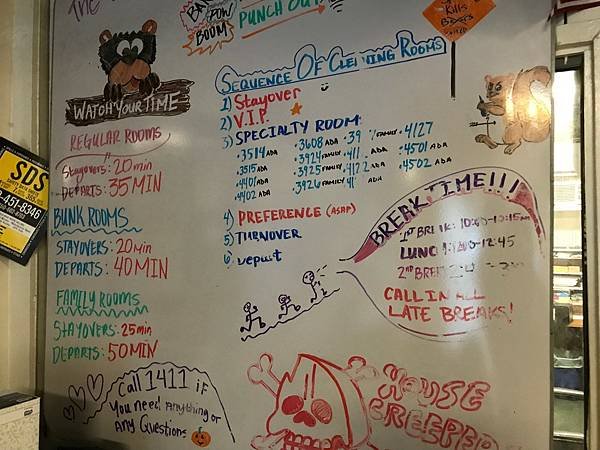 THE
BAM
POW
BOOM
PUNCH OUT
Kills
WATCH YOUR TIME
REGULAR ROOMS
Stayovers: 20 min
DEPARTS: 35 MIN
BUNK ROOMS
STAYOVERS: 20 min
DEPARTS: 40 MIN
FAMILY ROOMS
STAYOVERS: 25 min
DEPARTS: 50 MIN
Call 1411 if
You need Anything or
Any Questions
SEQUENCE OF CLEANING ROOMS
1) Stayover
2) V.I.P.
3) SPECIALTY ROOM
•3514 ADA •3608 ADA •39 FAMILY •4127
•3515 ADA •3924 FAMILY •411 ADA •4501 ADA
•4401 ADA •3925 FAMILY •4122 ADA •4502 ADA
•4402 ADA •3926 FAMILY •41 ADA
4) PREFERENCE (ASAP)
5) TURNOVER
6) Depart
BREAK TIME!!!
1ST BREAK: 10:00-10:15am
LUNCH 12:00-12:45
2ND BREAK
CALL IN ALL
LATE BREAKS!
HOUSE
CREEPERS
SDS
-451-8346